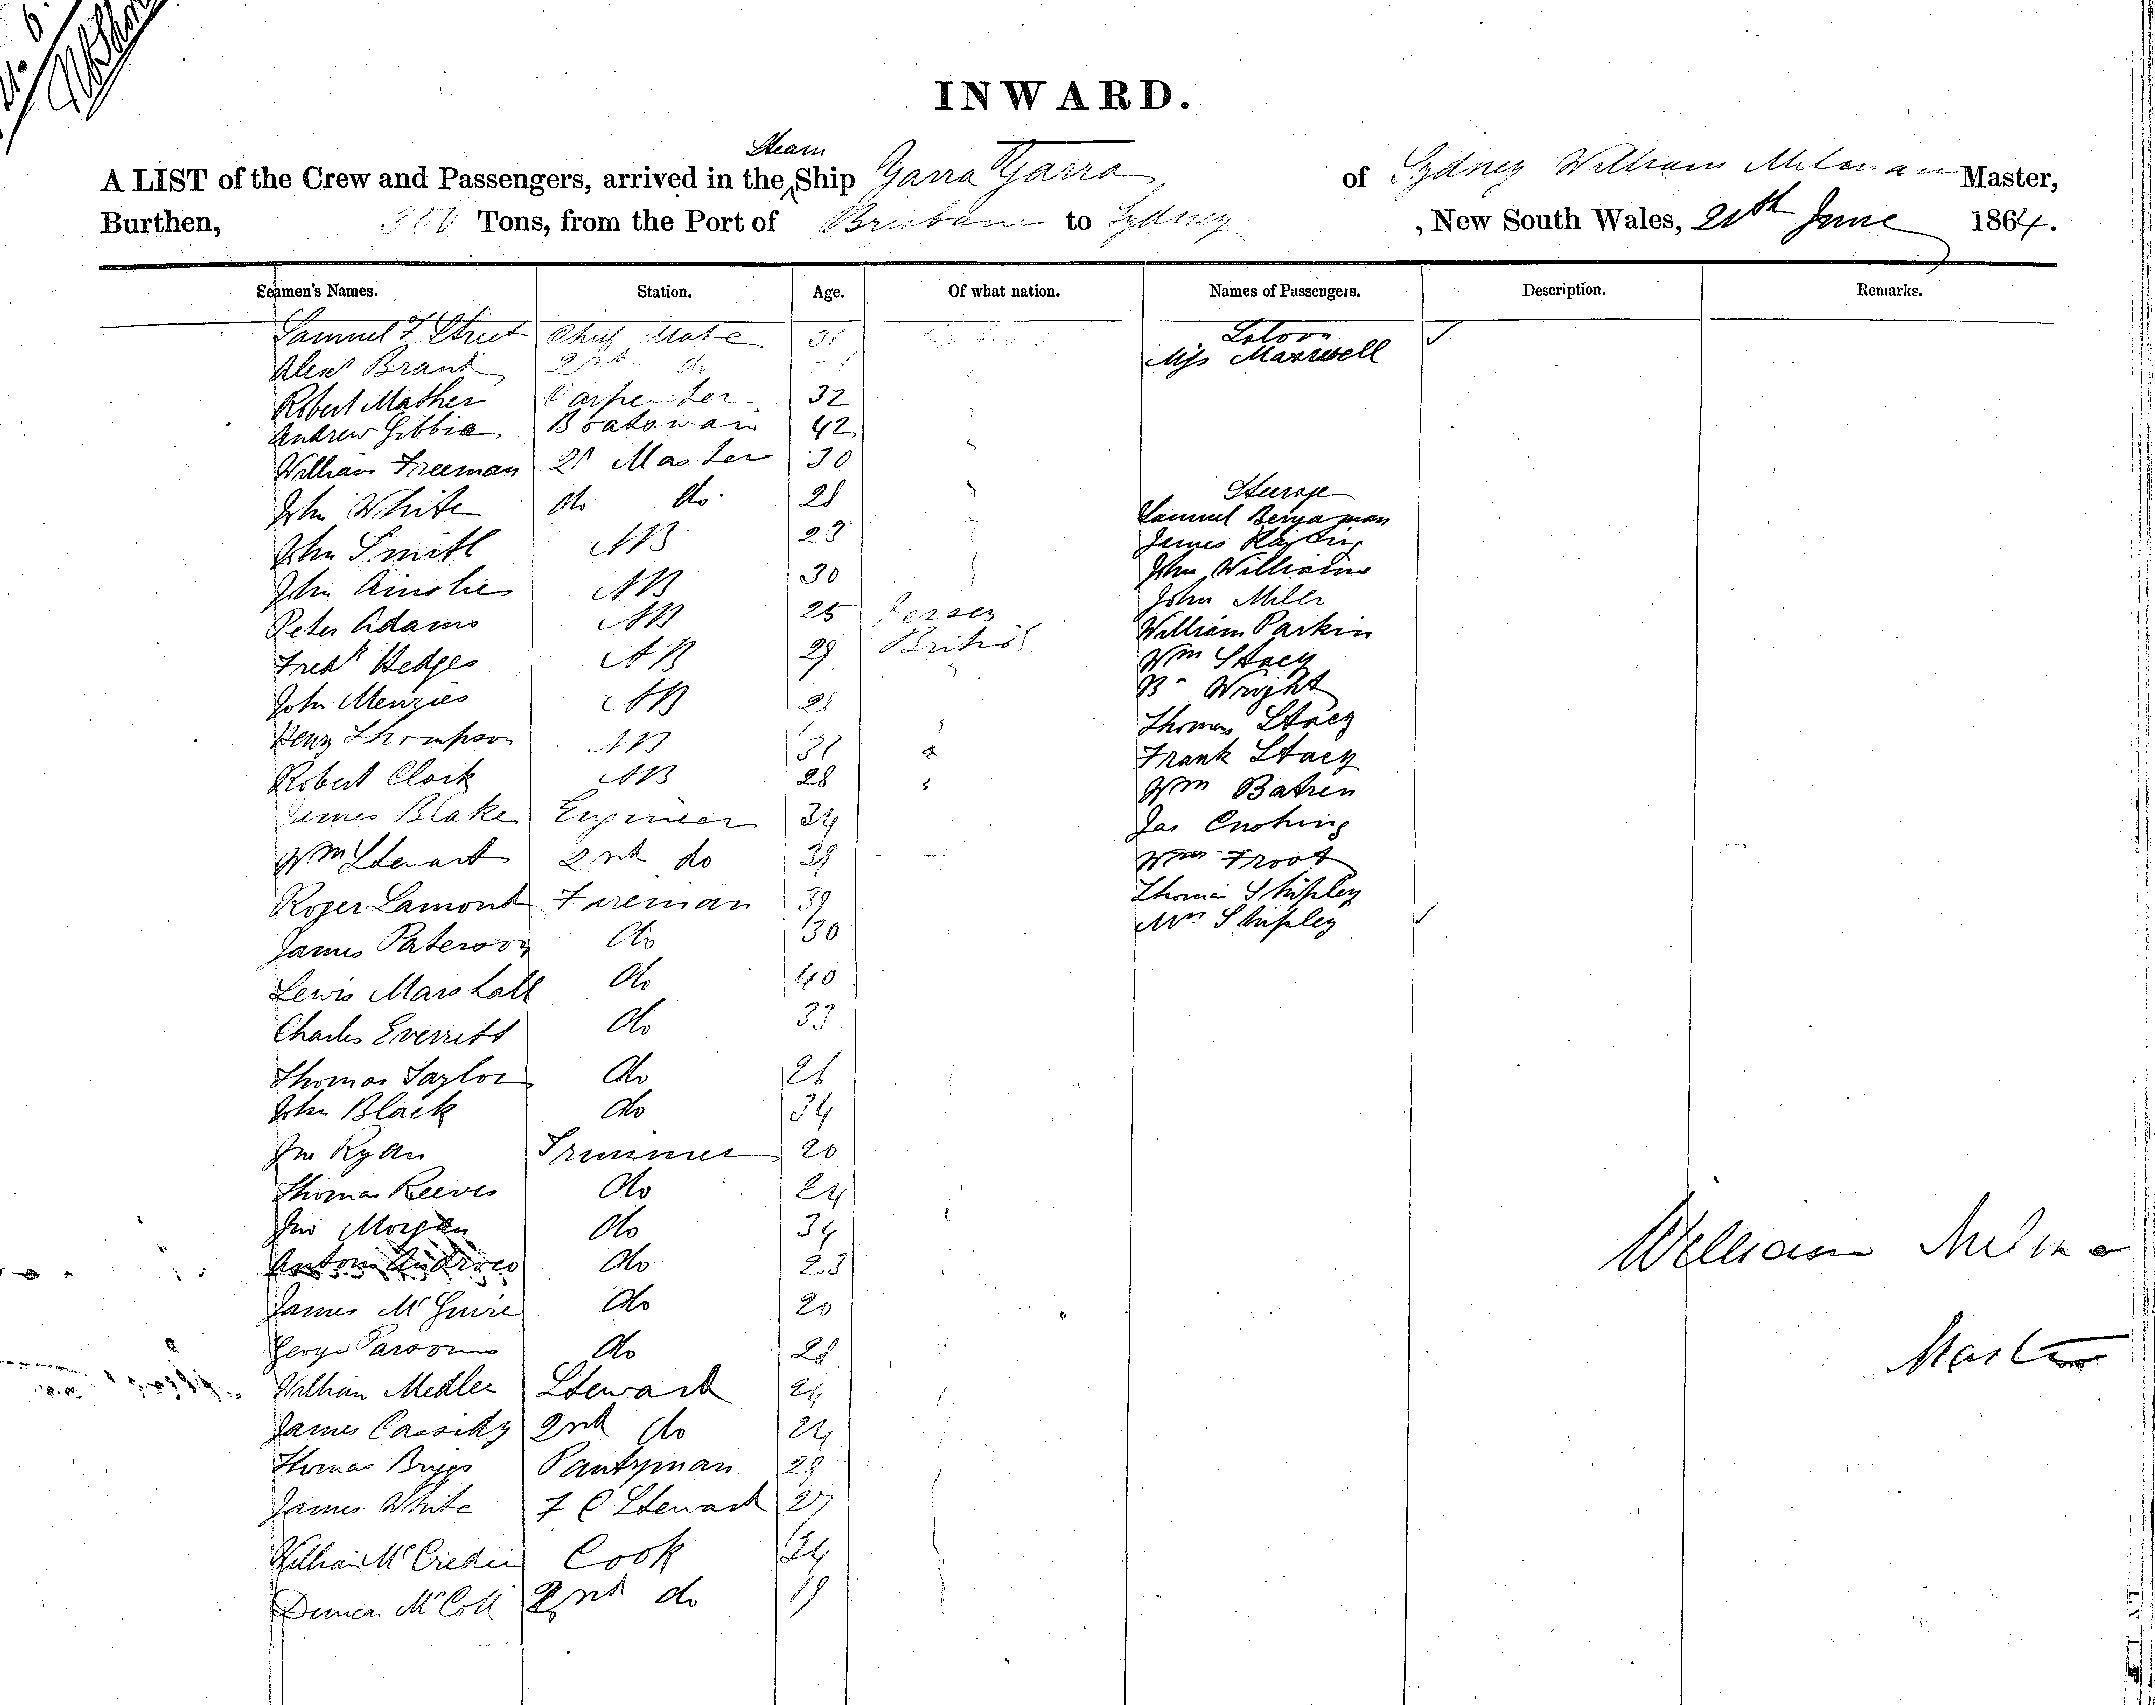 INWARD.
Steam
A LIST of the Crew and Passengers, arrived in the Ship Yarra Yarra of Sydney William Milman Master,
Burthen, Tons, from the Port of Brisbane to Sydney , New South Wales, 21th June 1864.
Seamen's Names. Station. Age. Of what nation. Names of Passengers. Description. Remarks.
Samuel F Street Chief Mate Saloon
Alexr Brand 2nd do Miss Maxwell
Robert Mather Carpenter 32
Andrew Gibbie Boatswain 42
William Freeman Qr Master 30
John White do do 28 Steerage
Samuel Bengaman
John Smith AB 29 James
John Ainslie AB 30 John Williams
Peter Adams AB 25 Jersey John Miller
Fredk Hedges AB 29 British William Parkin
Wm Stacy
John Menzies AB Wright
Henry Thompson AB 31 Thomas Stacy
Robert Clark AB 28 Frank Stacy
James Blake Engineer 34 Wm Batren
Jas Cushing
Wm Stewart 2nd do 39 Wm Troot
Roger Lamont Fireman 39 Thomas Shipley
James Paterson do 30 Mrs Shipley
Lewis Marshall do 40
Charles Everritt do 33
Thomas Taylor do 26
John Black do 34
Jno Ryan Trimmer 20
Thomas Reeves do 24
Jno Morgan do 34
Antoni Andrico do 23
James McGuire do 20
George Parsons do 28
William Medler Steward 24
James Cassidy 2nd do 24
Thomas Briggs Pantryman 29
James White F C Steward 27
William McCredie Cook 34
Duncan McColl 2nd do 19
William Milman
Master